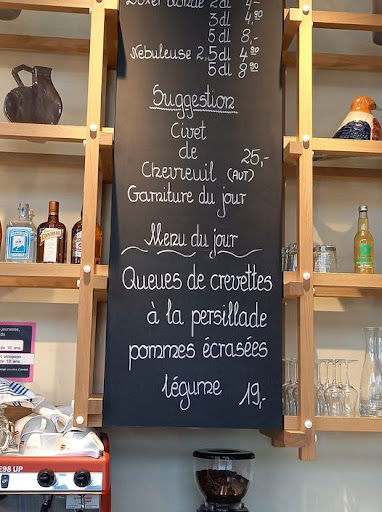 Boxer Blonde 2dl 4.-
3dl 4.90
5dl 8,-
Nébuleuse 2,5dl 4.90
5dl 8.90
Suggestion
Civet
de
Chevreuil (AUT) 25,-
Garniture du jour
Menu du jour
Queues de crevettes
à la persillade
pommes écrasées
légume 19,-
E98 UP